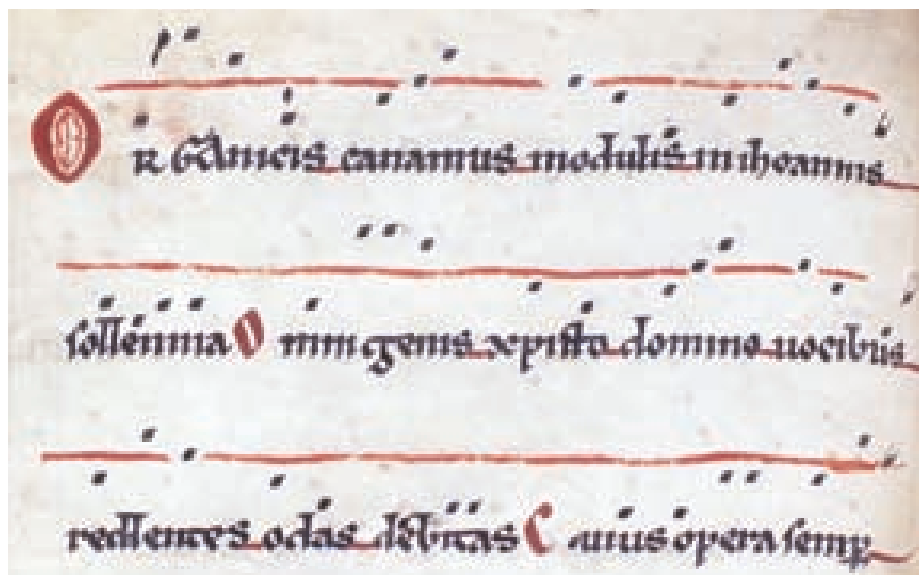 ORGAnicis canamus modulis in ihoannis
sollennia Omnigenis xpisto domino uocibus
reddentes odas debitas Cuius opera semp